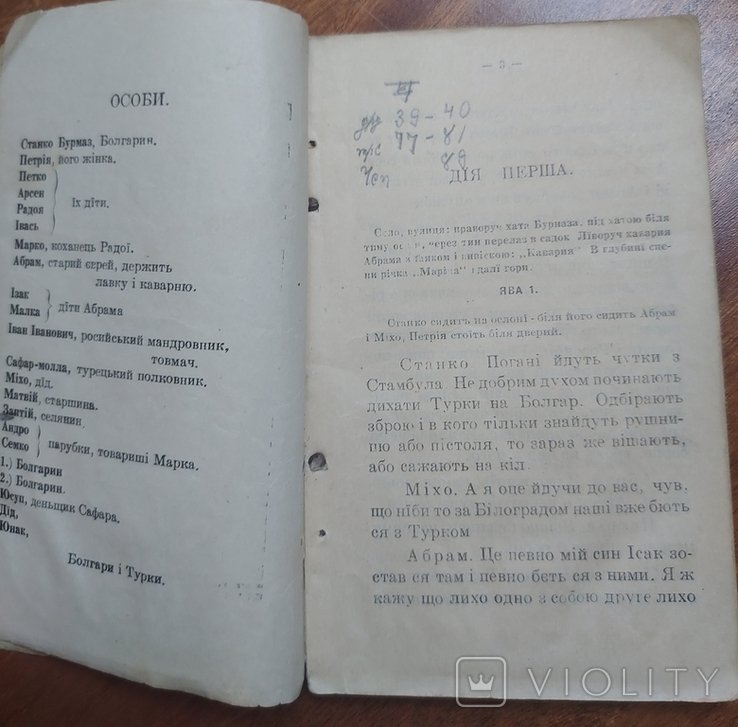 ОСОБИ.
Станко Бурмаз, Болгарин.
Петрія, його жінка.
Петко
Арсен
Радоя
Івась
їх діти.
Марко, коханець Радої.
Абрам, старий єврей, держить
лавку і каварню.
Ізак
Малка
діти Абрама
Іван Іванович, росийський мандровник,
товмач.
Сафар-молла, турецький полковник.
Міхо, дід.
Матвій, старшина.
селянин
Андро
Семко
парубки, товариші Марка.
1.) Болгарин
2.) Болгарин.
Юсуп, деньщик Сафара.
Дід,
Юнак,
Болгари і Турки.
— 3 —
39-40
77-81
89
ДІЯ ПЕРША.
Село, вулиця: праворуч хата Бурмаза. під хатою біля
тину через тин перелаз в садок Ліворуч каварня
Абрама з ґанком і вивіскою: „Каварня" В глубині сце-
ни річка і далі гори.
ЯВА 1.
Станко сидить на ослоні - біля його сидить Абрам
і Міхо, Петрія стоіть біля дверий.
Станко Погані йдуть чутки з
Стамбула. Не добрим духом починають
дихати Турки на Болгар. Одбірають
зброю і в кого тільки знайдуть рушни-
цю або пістоля, то зараз же вішають,
або сажають на кіл.
Міхо. А я оце йдучи до вас, чув,
що ніби то за Білоградом наші вже бють
ся з Турком
Абрам. Це певно мій син Ісак зо-
став ся там і певно бєть ся з ними. Я ж
кажу що лихо одно з собою друге лихо
VIOLITY